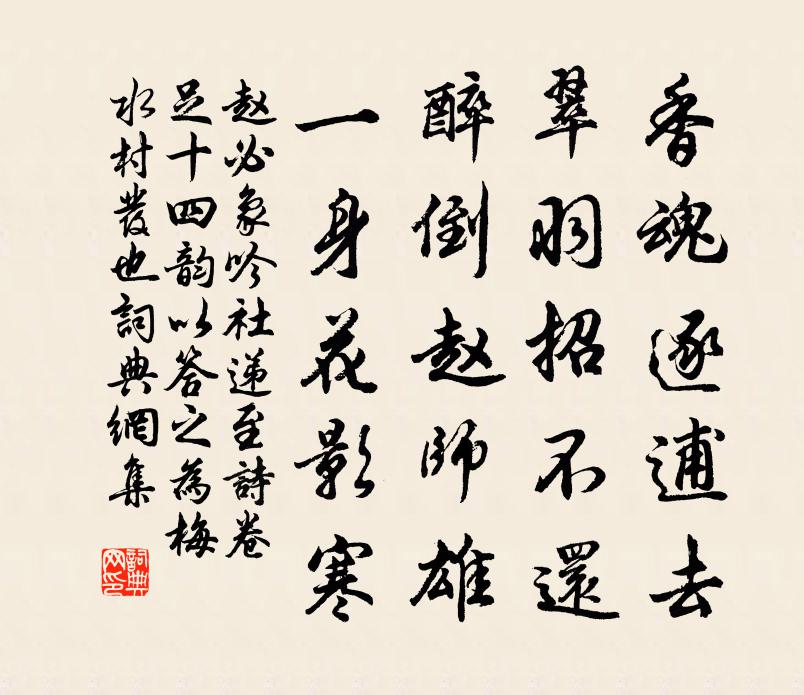 香魂逐逋去
翠羽招不還
醉倒赵師雄
一身花影寒
赵必象吟社递至詩卷
足十四韵以答之為梅
水村發也詞典網集
詞典网印